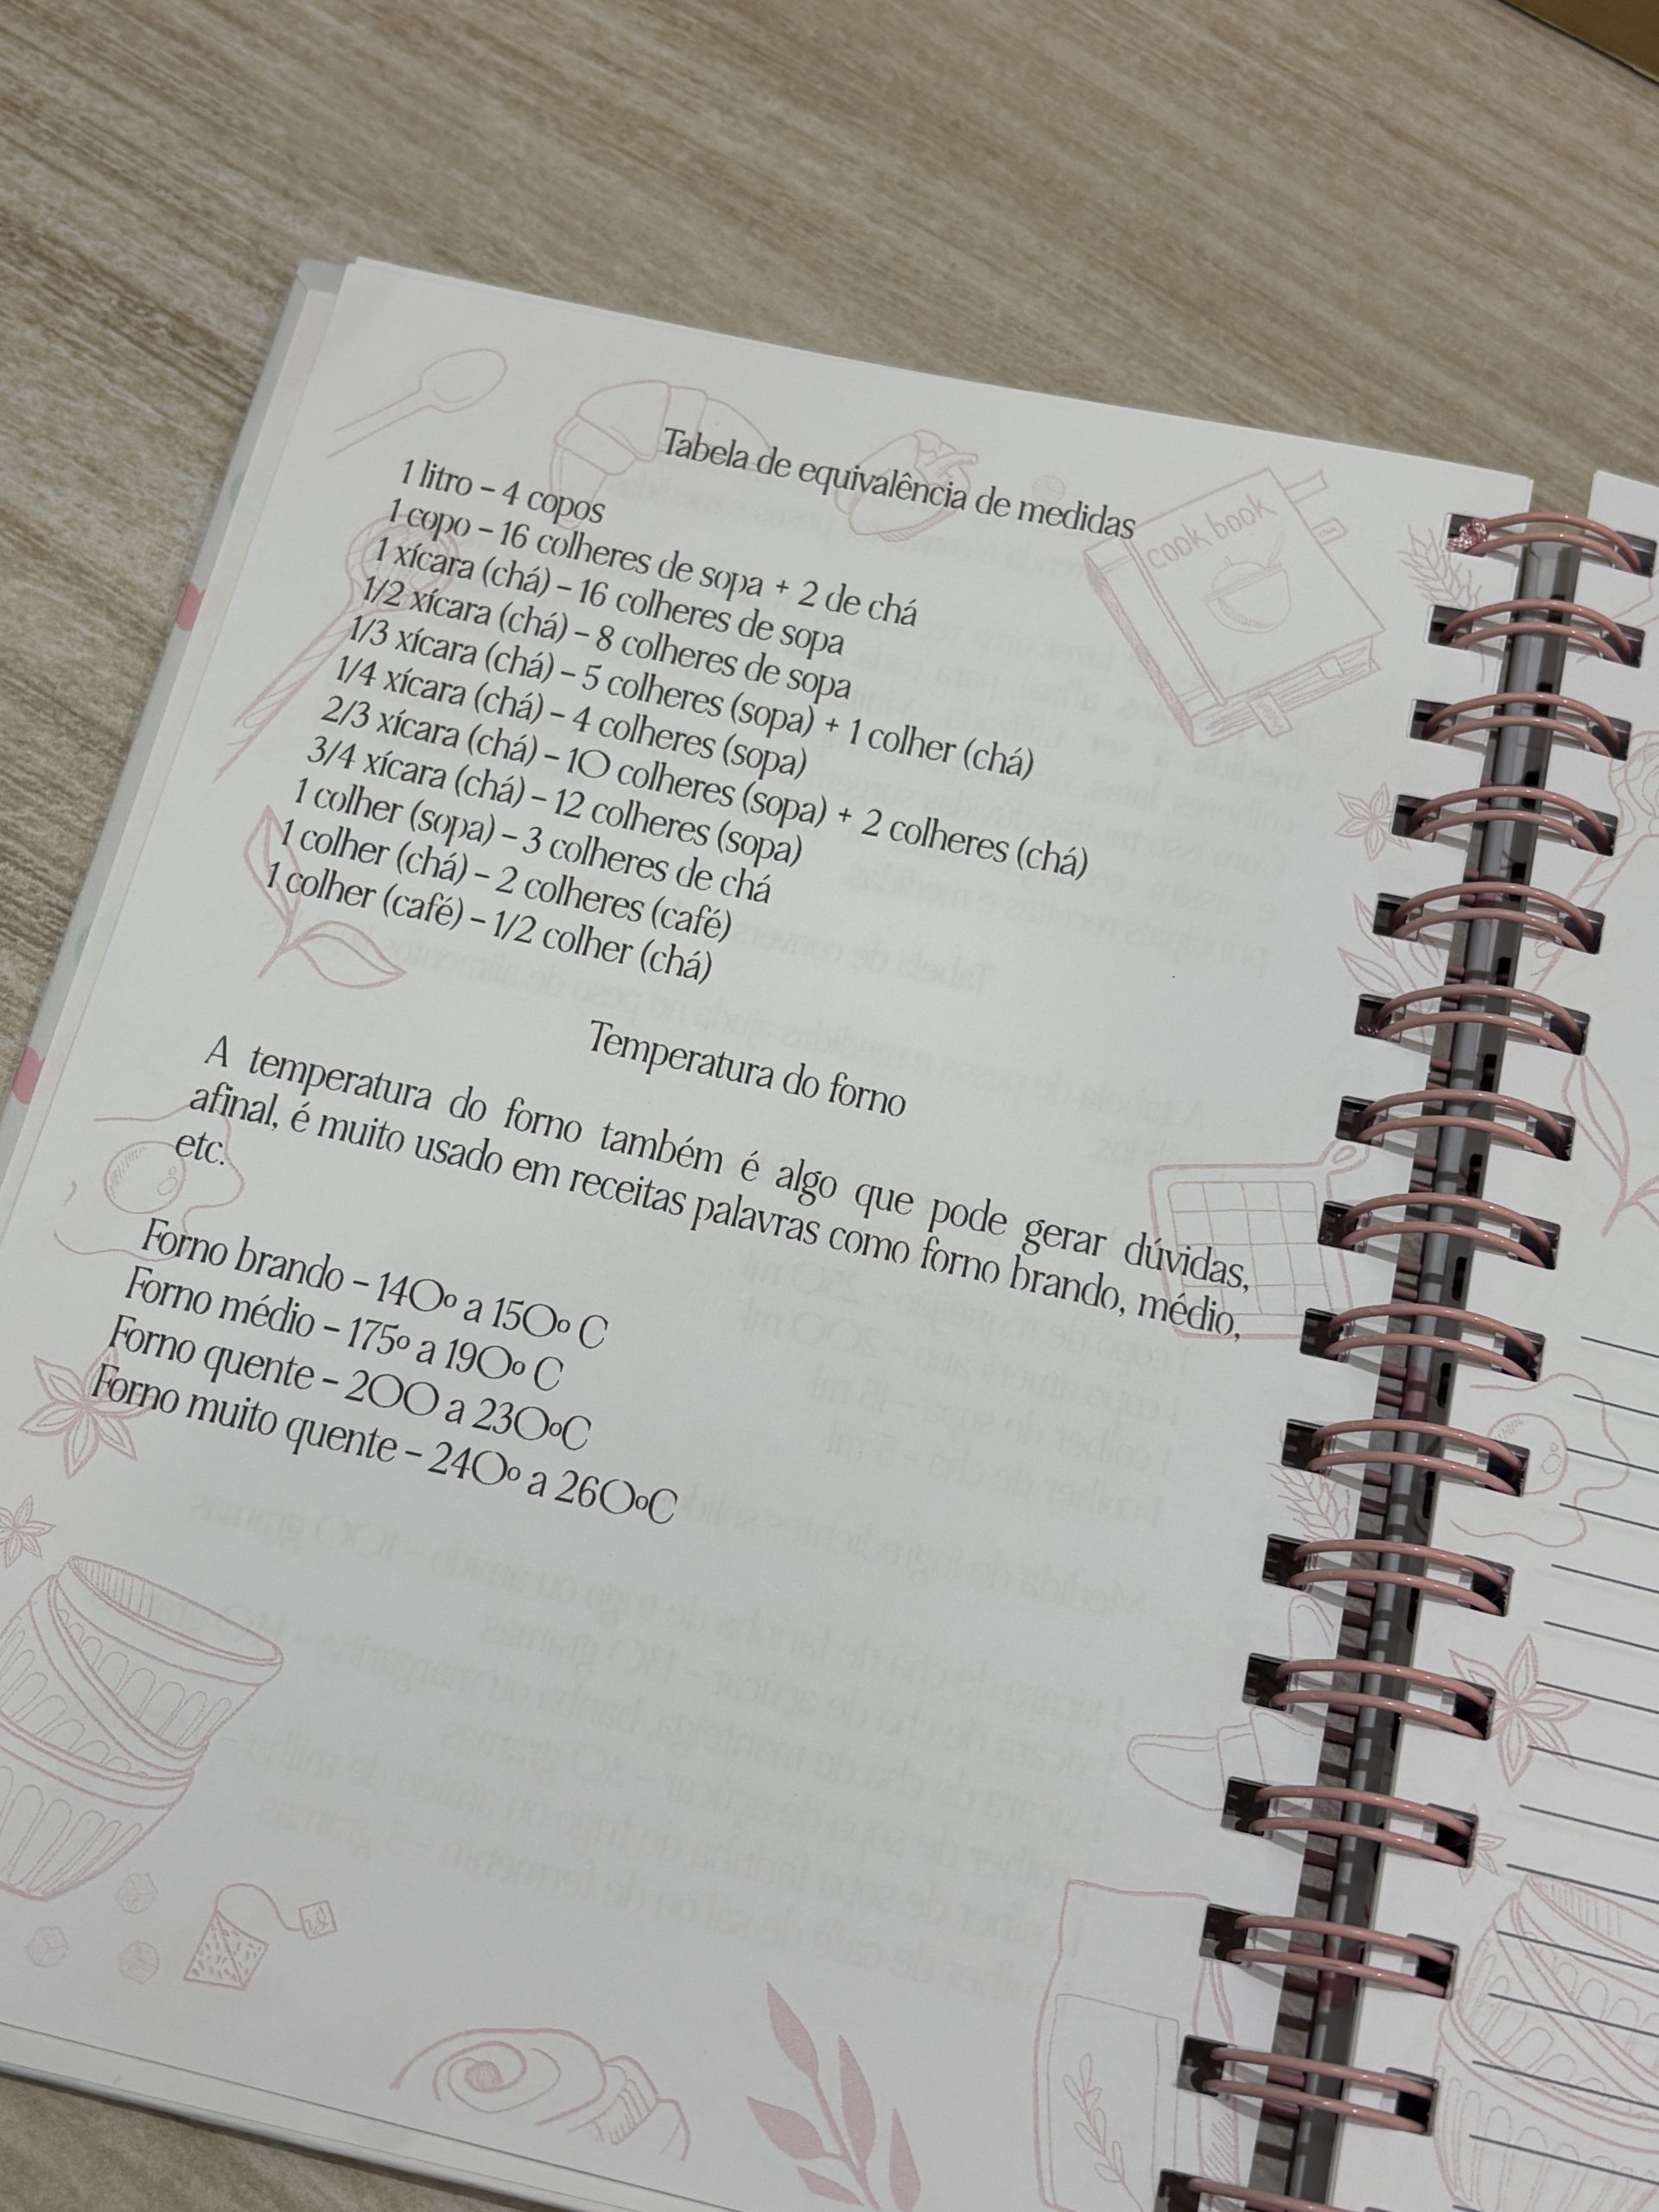 Tabela de equivalência de medidas
1 litro – 4 copos
1 copo – 16 colheres de sopa + 2 de chá
1 xícara (chá) – 16 colheres de sopa
1/2 xícara (chá) – 8 colheres de sopa
1/3 xícara (chá) – 5 colheres (sopa) + 1 colher (chá)
1/4 xícara (chá) – 4 colheres (sopa)
2/3 xícara (chá) – 10 colheres (sopa) + 2 colheres (chá)
3/4 xícara (chá) – 12 colheres (sopa)
1 colher (sopa) – 3 colheres de chá
1 colher (chá) – 2 colheres (café)
1 colher (café) – 1/2 colher (chá)
cook book
Temperatura do forno
A temperatura do forno também é algo que pode gerar dúvidas,
afinal, é muito usado em receitas palavras como forno brando, médio,
etc.
Forno brando – 140º a 150º C
Forno médio – 175º a 190º C
Forno quente – 200 a 230ºC
Forno muito quente – 240º a 260ºC